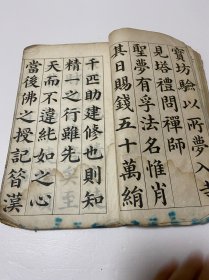 寶坊驗以所夢入寺
見塔禮問禪師
聖夢有孚法名惟肖
其日賜錢五十萬絹
千匹助建修也則知
精一之行雖先
天而不違純如之心
當後佛之授記昔漢